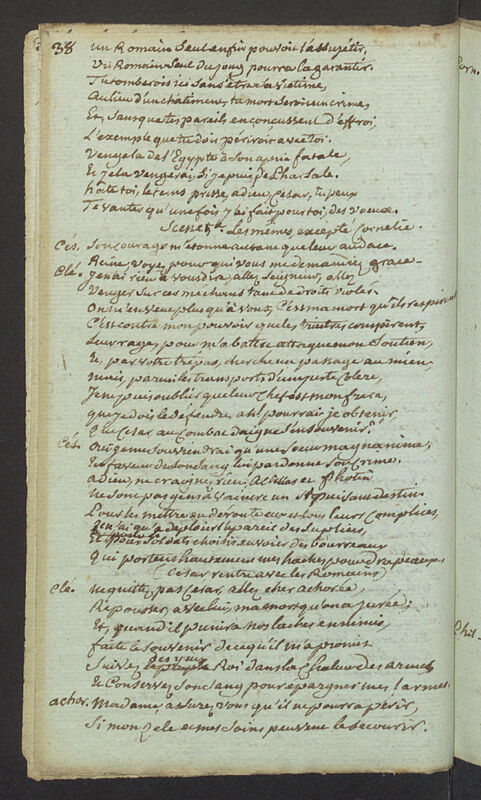 38 un Romain seul enfin pouvoit l'assujetir,
Un Romain seul du joug pourra la garantir.
Tu tomberois ici sans être sa victime,
Au lieu d'un châtiment, ta mort seroit un crime,
Et, sans que tes pareils en conçussent d'effroi,
L'exemple que tu dois périroit avec toi.
Venge la de l'Egypte à son apui fatale,
Et je la vengerai, si je puis, de Pharsale.
hâte toi, le tems presse, adieu, Cesar, tu peux
Te vanter qu'une fois j'ai fait pour toi des voeux.
Scene 5e. Les mêmes, excepté Cornelie.
Cés. Son courage m'étonne autant que leur audace.
Reine, voyez pour qui vous me demandiez grace.
Clé. Je n'ai rien à vous dire, allez, Seigneur, allez
Venger sur ces méchans tant de droits violés.
On m'en veut plus qu'à vous, c'est ma mort qu'ils respirent
C'est contre mon pouvoir que les traîtres conspirent,
Leur rage, pour m'abattre attaque mon soutien,
Et, par votre trépas, cherche un passage au mien
mais, parmi les transports d'une juste colere,
Je ne puis oublier que leur chef est mon frere,
que je dois le défendre, ah! pourrai-je obtenir
Que Cesar au combat daigne s'en souvenir?
Cés. Oui je me souviendrai qu'une soeur magnanime,
En faveur de son sang lui pardonne son crime.
adieu, ne craignez rien, Achillas et Photin
Ne sont pas gens à vaincre un si puissant destin
Pour les mettre en déroute eux et tous leurs complices,
Je n'ai qu'à déploier l'apareil des suplices,
Et pour soldats choisis envoier des bourreaux
Qui portent hautement mes haches pour drapeaux.
(Cesar rentre avec les Romains)
Clé. ne quittez pas Cesar, allez, cher achorée,
Répousser avec lui ma mort qu'on a jurée;
Et, quand il punira nos laches ennemis,
faite le souvenir de ce qu'il m'a promis
Suivez des yeux le Roi dans la chaleur des armes
Et Conservez son sang pour épargner mes larmes.
achor. Madame, assurez vous qu'il ne pourra périr,
Si mon zele et mes soins peuvent le secourir.